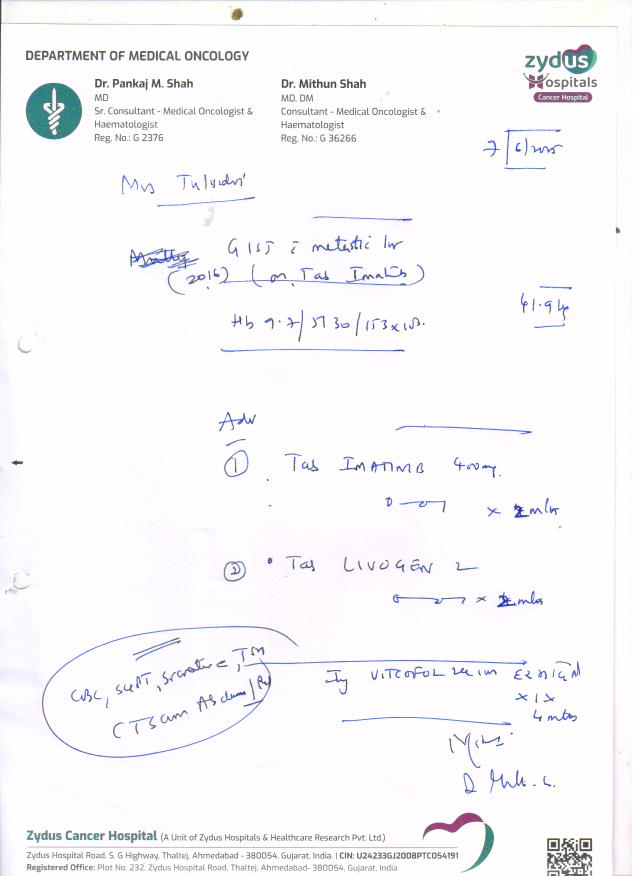 DEPARTMENT OF MEDICAL ONCOLOGY
zydus
Hospitals
Cancer Hospital
Dr. Pankaj M. Shah
MD
Sr. Consultant - Medical Oncologist &
Haematologist
Reg. No.: G 2376
Dr. Mithun Shah
MD, DM
Consultant - Medical Oncologist &
Haematologist
Reg. No.: G 36266
7/6/2025
Mrs
GIST c metastic
(2016) (on Tab Imatinib)
41.9 kg
Hb 9.7/5130/153x10³
Adv
① Tab IMATINIB 400mg
0
x 2 mths
② Tab LIVOGEN Z
x 2 mths
CBC, SGPT, S creatinine, TSH
CT Scan Abdomen/
Inj VITCOFOL 2cc im
x 1 x
4 mths
Zydus Cancer Hospital (A Unit of Zydus Hospitals & Healthcare Research Pvt. Ltd.)
Zydus Hospital Road, S. G Highway, Thaltej, Ahmedabad - 380054, Gujarat, India. | CIN: U24233GJ2008PTC054191
Registered Office: Plot No. 232, Zydus Hospital Road, Thaltej, Ahmedabad - 380054, Gujarat, India